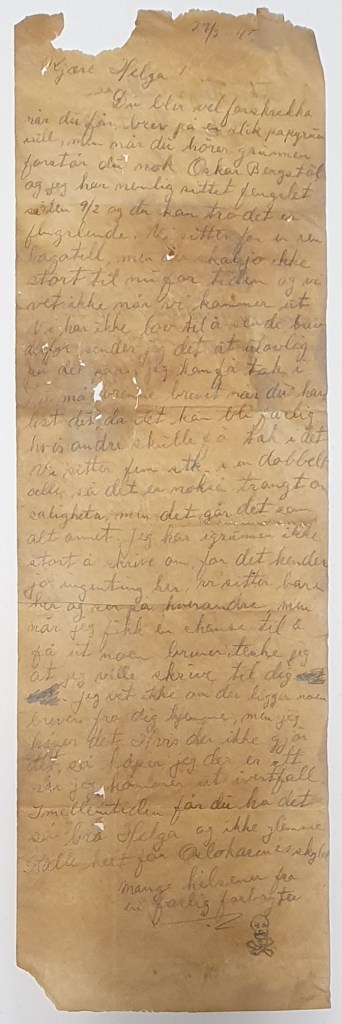 27/3 45
Kjære Helga!
Du blir vel forskrekka
når du får brev på en slik papyrus
rull, men når du hører grunnen
forstår du nok Oskar Bergstøl
og jeg har nemlig sittet fengslet
siden 9/2 og du kan tro det er
Vi sitter for en ren
bagatell, men der skal jo ikke
stort til nu for tiden og vi
vet ikke når vi kommer ut
Vi har ikke lov til å sende brev
derfor sender jeg det ut ulovlig
på det papir jeg kan få tak i
du må brenne brevet når du har
lest det da det kan bli farlig
hvis andre skulle få tak i det
Vi sitter fem stk. i en dobbelt
celle, så det er nokså trangt om
saligheta, men det går det som
alt annet. Jeg har igrunnen ikke
stort å skrive om, for det hender
jo ingenting her, vi sitter bare
her og ser på hverandre, men
når jeg fikk en chanse til å
få ut noen brever, tenkte jeg
at jeg ville skrive til dig
Jeg vet ikke om der ligger noen
brever fra dig hjemme, men jeg
håper det. Hvis der ikke gjør
det, så håper jeg der er ett
når jeg kommer ut ivertfall
Imellemtiden får du ha det
så bra Helga og ikke glemme
helt for Oslokarenes skyld
Mange hilsener fra
en farlig forbryter